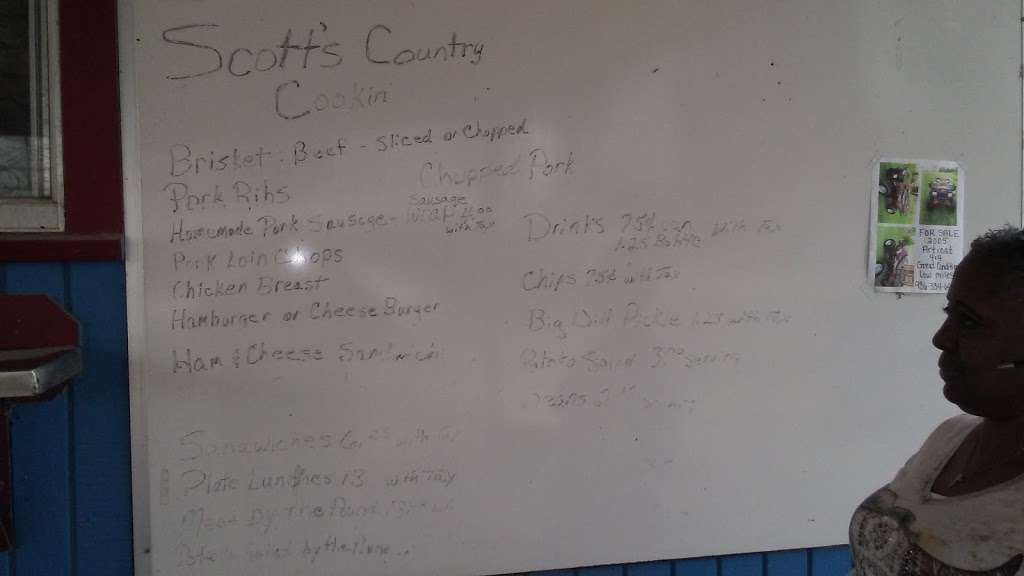 Scott's Country
Cookin
Brisket: Beef - Sliced or Chopped
Chopped Pork
Pork Ribs
Homemade Pork Sausage - Sausage
Wrap 4.00
with Tax
Pork Loin Chops
Chicken Breast
Hamburger or Cheese Burger
Ham & Cheese Sandwich
Drinks 75¢ can with Tax
1.25 Bottle
Chips 75¢ with Tax
Big Dill Pickle 1.25 with Tax
Potato Salad 3.00 Serving
Beans
Sandwiches with Tax
Plate Lunches 13 with Tax
Meat By The Pound
FOR SALE
2005
Artcat
4x4
Good Condition
Low miles